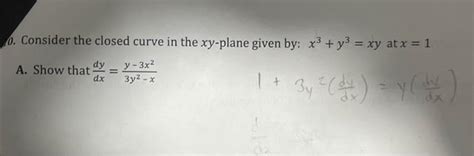 0. Consider the closed curve in the xy-plane given by: x³ + y³ = xy at x = 1
A. Show that dy/dx = (y − 3x²)/(3y² − x)
1 + 3y²(dy/dx) = y(dy/dx)
1
dx